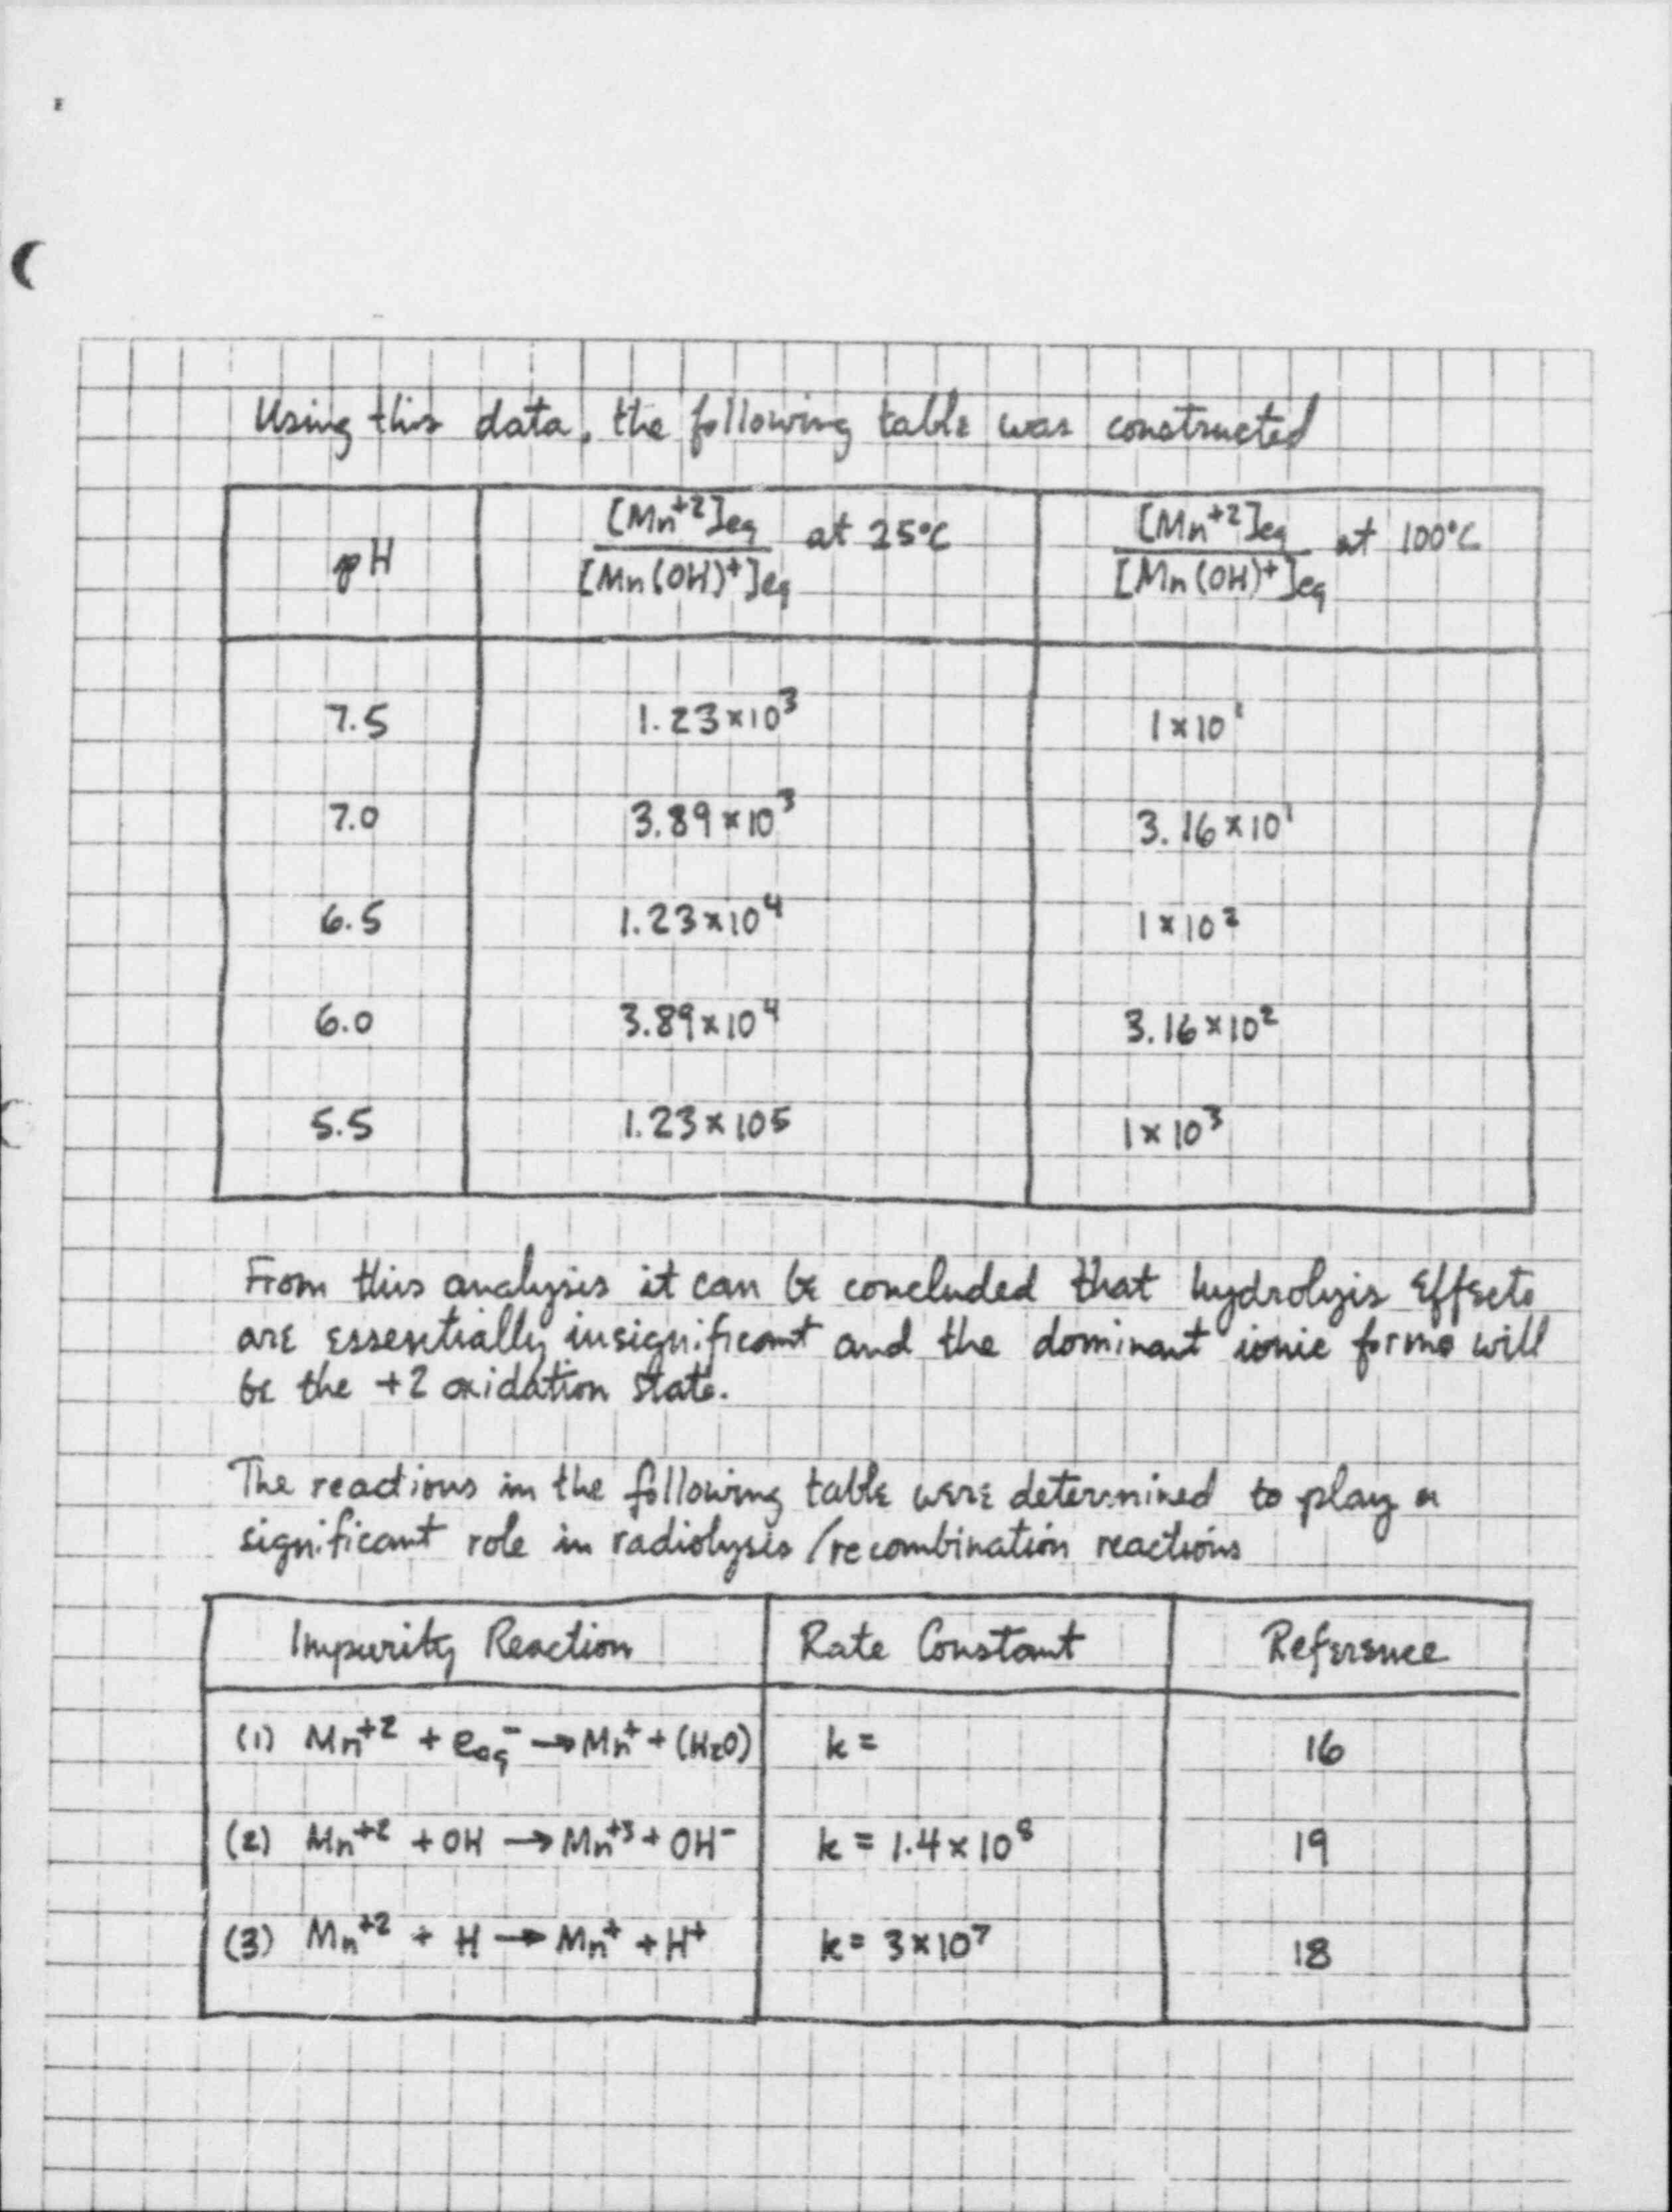 Using this data, the following table was constructed
pH [Mn⁺²]eq / [Mn(OH)⁺]eq at 25°C [Mn⁺²]eq / [Mn(OH)⁺]eq at 100°C
7.5 1.23×10³ 1×10¹
7.0 3.89×10³ 3.16×10¹
6.5 1.23×10⁴ 1×10²
6.0 3.89×10⁴ 3.16×10²
5.5 1.23×10⁵ 1×10³
From this analysis it can be concluded that hydrolysis effects
are essentially insignificant and the dominant ionic forms will
be the +2 oxidation state.
The reactions in the following table were determined to play a
significant role in radiolysis/recombination reactions
Impurity Reaction Rate Constant Reference
(1) Mn⁺² + eaq⁻ → Mn⁺ + (H₂O) k = 16
(2) Mn⁺² + OH → Mn⁺³ + OH⁻ k = 1.4×10⁸ 19
(3) Mn⁺² + H → Mn⁺ + H⁺ k = 3×10⁷ 18